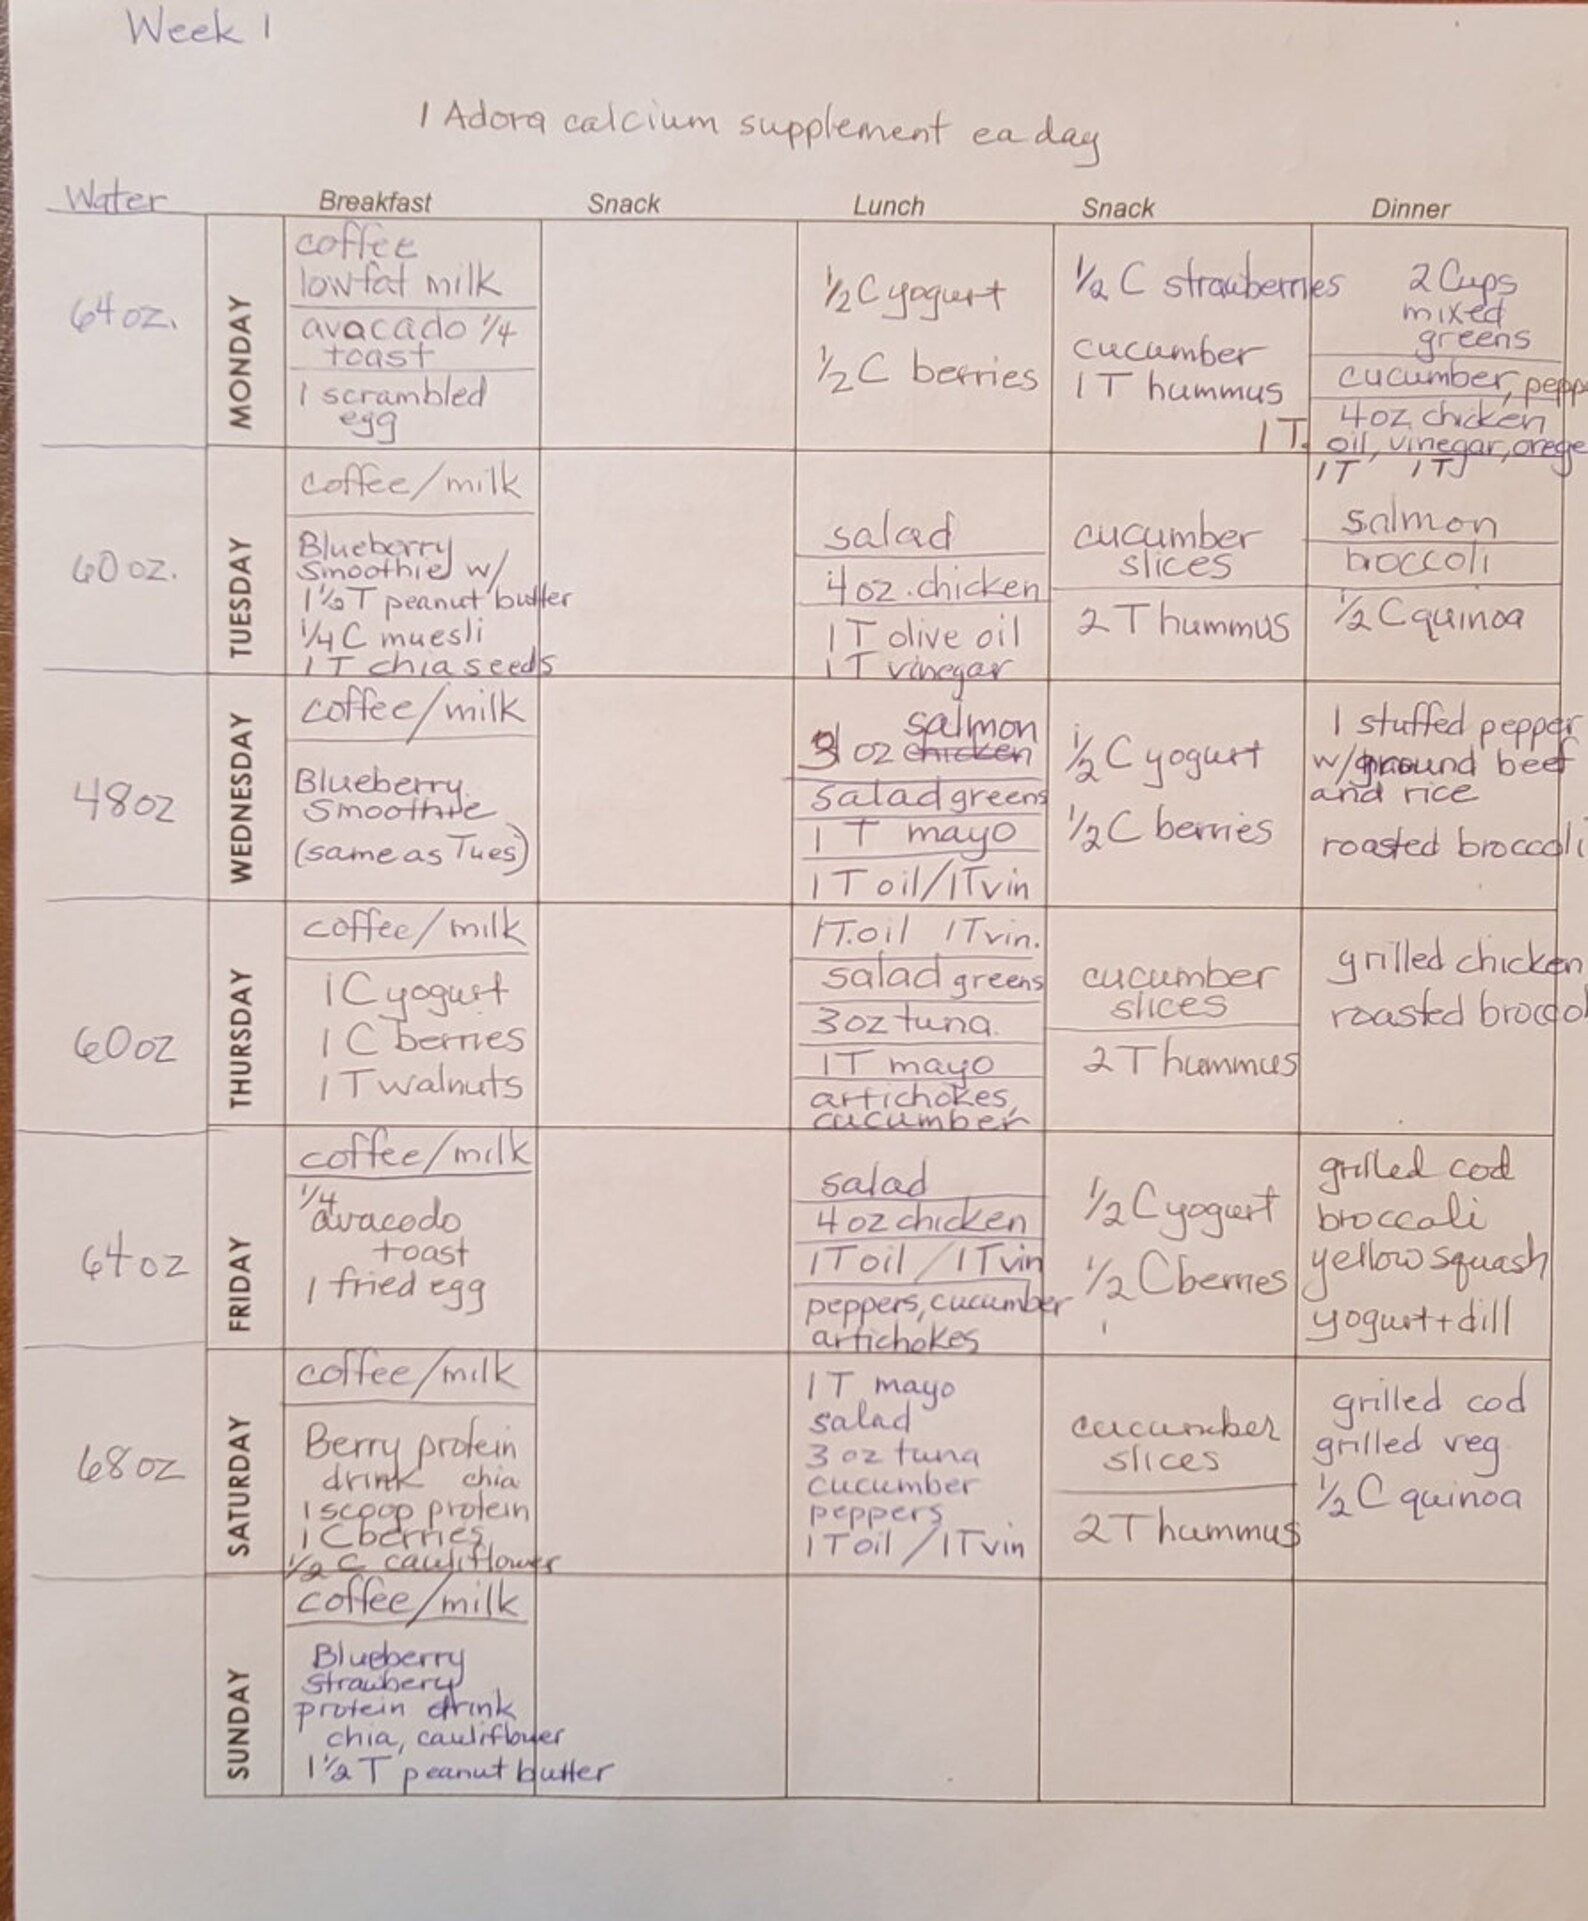 Week 1
1 Adora calcium supplement ea day
Water Breakfast Snack Lunch Snack Dinner
64 oz.
MONDAY
coffee
lowfat milk
avacado 1/4
toast
1 scrambled
egg
1/2 C yogurt
1/2 C berries
1/2 C strawberries
cucumber
1 T hummus
2 Cups
mixed
greens
cucumber, pepp
4oz chicken
1 T. oil, vinegar, orege
1T 1T
60 oz.
TUESDAY
coffee/milk
Blueberry
Smoothie w/
1 1/2 T peanut butter
1/4 C muesli
1 T chia seeds
salad
4 oz. chicken
1 T olive oil
1 T vinegar
cucumber
slices
2 T hummus
salmon
broccoli
1/2 C quinoa
48oz
WEDNESDAY
coffee/milk
Blueberry
Smoothie
(same as Tues)
salmon
3 oz chicken
salad greens
1 T mayo
1 T oil/1T vin
1/2 C yogurt
1/2 C berries
1 stuffed pepper
w/ground beef
and rice
roasted broccoli
60oz
THURSDAY
coffee/milk
1C yogurt
1 C berries
1 T walnuts
1T.oil 1Tvin.
salad greens
3oz tuna
1T mayo
artichokes,
cucumber
cucumber
slices
2 T hummus
grilled chicken
roasted broccol
64oz
FRIDAY
coffee/milk
1/4
avacodo
toast
1 fried egg
salad
4 oz chicken
1 T oil / 1 T vin
peppers, cucumber
artichokes
1/2 C yogurt
1/2 C berries
grilled cod
broccoli
yellow squash
yogurt + dill
68oz
SATURDAY
coffee/milk
Berry protein
drink chia
1 scoop protein
1 C berries
1/2 C cauliflower
1 T mayo
salad
3 oz tuna
cucumber
peppers
1 T oil / 1 T vin
cucumber
slices
2 T hummus
grilled cod
grilled veg
1/2 C quinoa
SUNDAY
coffee/milk
Blueberry
Strawbery
protein drink
chia, cauliflower
1 1/2 T peanut butter